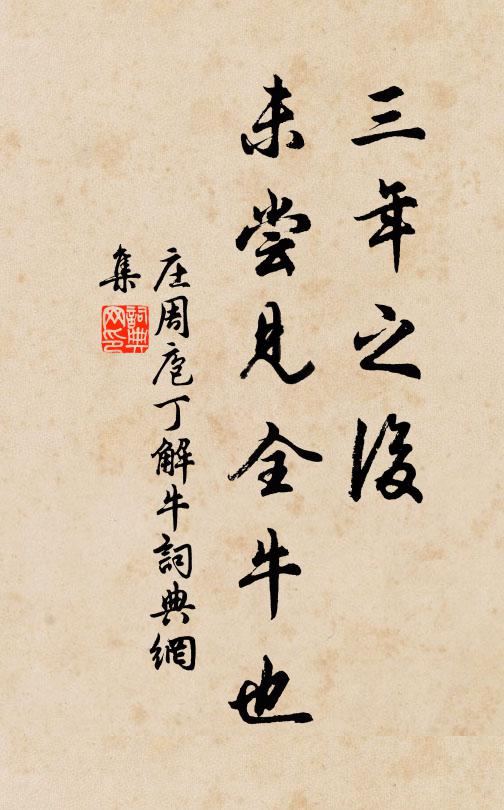 三年之後
未尝見全牛也
庄周庖丁解牛詞典網
集
詞典
网印